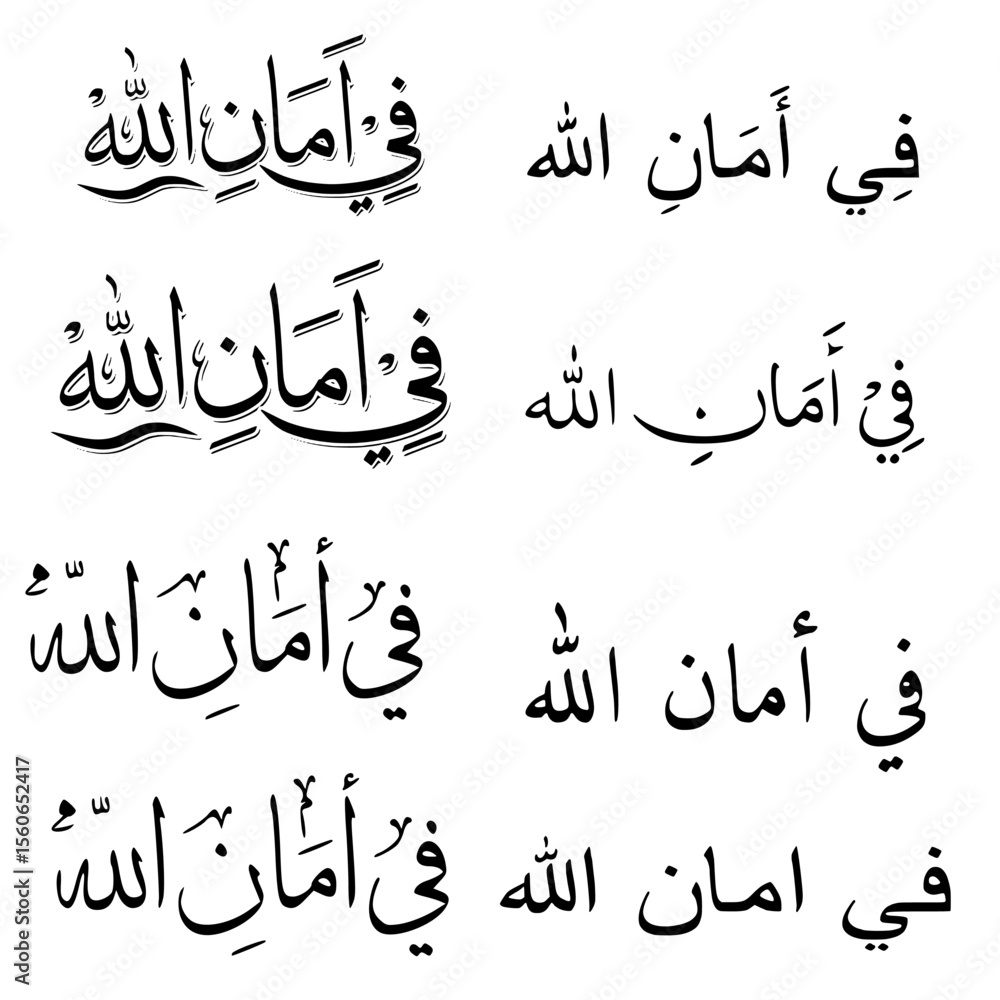 في أَمَانِ الله
فِيْ أَمَانِ اللهْ
فِيْ أَمَانِ الله
فِيْ أَمَانِ اللهْ
في أمان الله
فيْ أَمَانِ اللّهُ
في امان الله
فيْ أَمَانِ اللّهُ
Adobe Stock | #1560652417